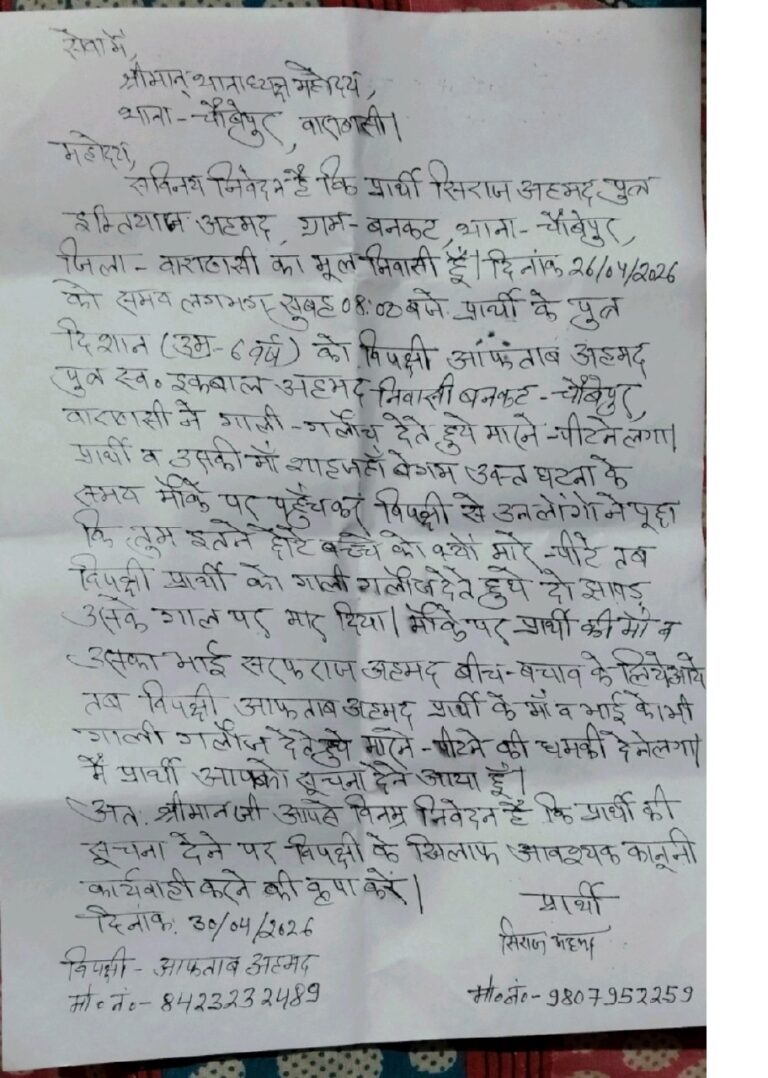 सेवा में,
श्रीमान् थानाध्यक्ष महोदय,
थाना - चौबेपुर, वाराणसी।
महोदय,
सविनय निवेदन है कि प्रार्थी सिराज अहमद पुत्र
इम्तियाज अहमद, ग्राम - बनकट, थाना - चौबेपुर,
जिला - वाराणसी का मूल निवासी हूँ। दिनांक 26/04/2026
को समय लगभग सुबह 08:00 बजे प्रार्थी के पुत्र
दिशान (उम्र - 6 वर्ष) को विपक्षी आफताब अहमद
पुत्र स्व॰ इकबाल अहमद निवासी बनकट - चौबेपुर,
वाराणसी ने गाली - गलौच देते हुये मारने - पीटने लगा।
प्रार्थी व उसकी माँ शाहजहाँ बेगम उक्त घटना के
समय मौके पर पहुँचकर विपक्षी से उनलोंगो ने पूछा
कि तुम इतने छोटे बच्चे को क्यों मारे - पीटे तब
विपक्षी प्रार्थी को गाली गलौज देते हुये दो झापड़
उसके गाल पर मार दिया। मौके पर प्रार्थी की माँ व
उसका भाई सरफराज अहमद बीच - बचाव के लिये आये
तब विपक्षी आफताब अहमद प्रार्थी के माँ व भाई को भी
गाली गलौज देते हुये मारने - पीटने की धमकी देने लगा।
मैं प्रार्थी आपको सूचना देने आया हूँ।
अत. श्रीमान जी आपसे विनम्र निवेदन है कि प्रार्थी की
सूचना देने पर विपक्षी के खिलाफ आवश्यक कानूनी
कार्यवाही करने की कृपा करें।
प्रार्थी
दिनांक. 30/04/2026
सिराज अहमद
विपक्षी - आफताब अहमद
मो॰ नं॰ - 8423232489
मो॰ नं॰ - 9807952259